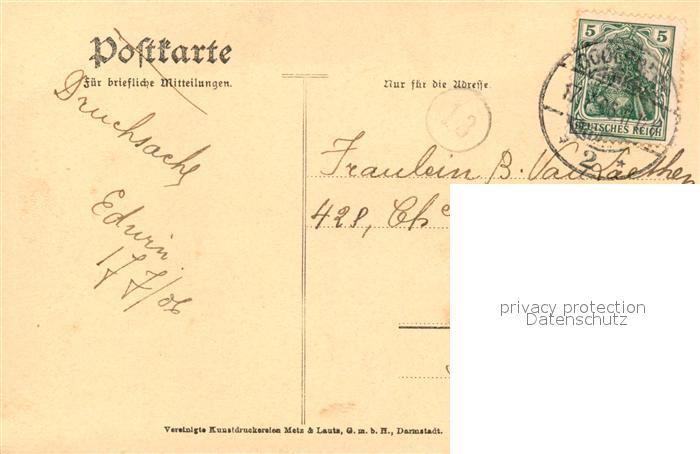 Postkarte
Für briefliche Mitteilungen.
Nur für die Adresse.
5 5
DEUTSCHES REICH
2 *
13
Drucksache
Edwin.
17/7/06
Fraulein B. Van Laethem
428, Chᵉ
privacy protection
Datenschutz
Vereinigte Kunstdruckereien Metz & Lautz, G. m. b. H., Darmstadt.